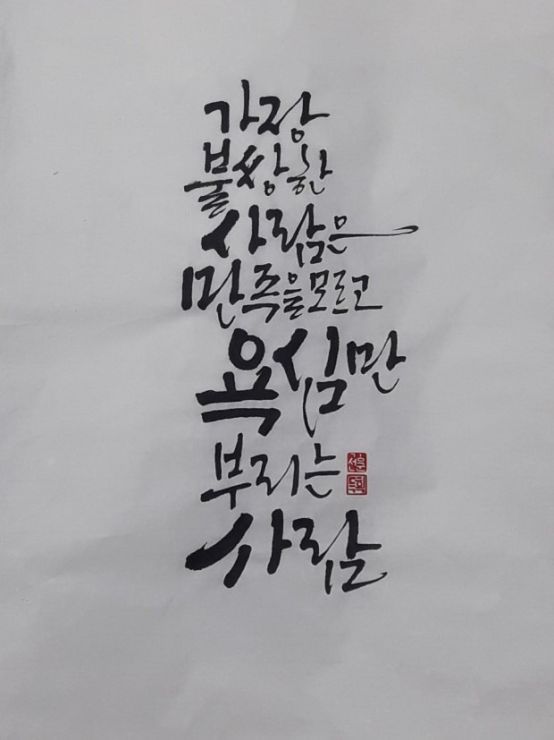 가장
불쌍한
사람은
만족을모르고
욕심만
부리는
사람